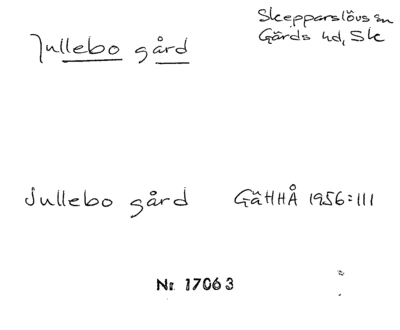 Jullebo gård
Skepparslövs sn
Gärds hd, Sk
Jullebo gård GäHHÅ 1956:111
Nr 17063